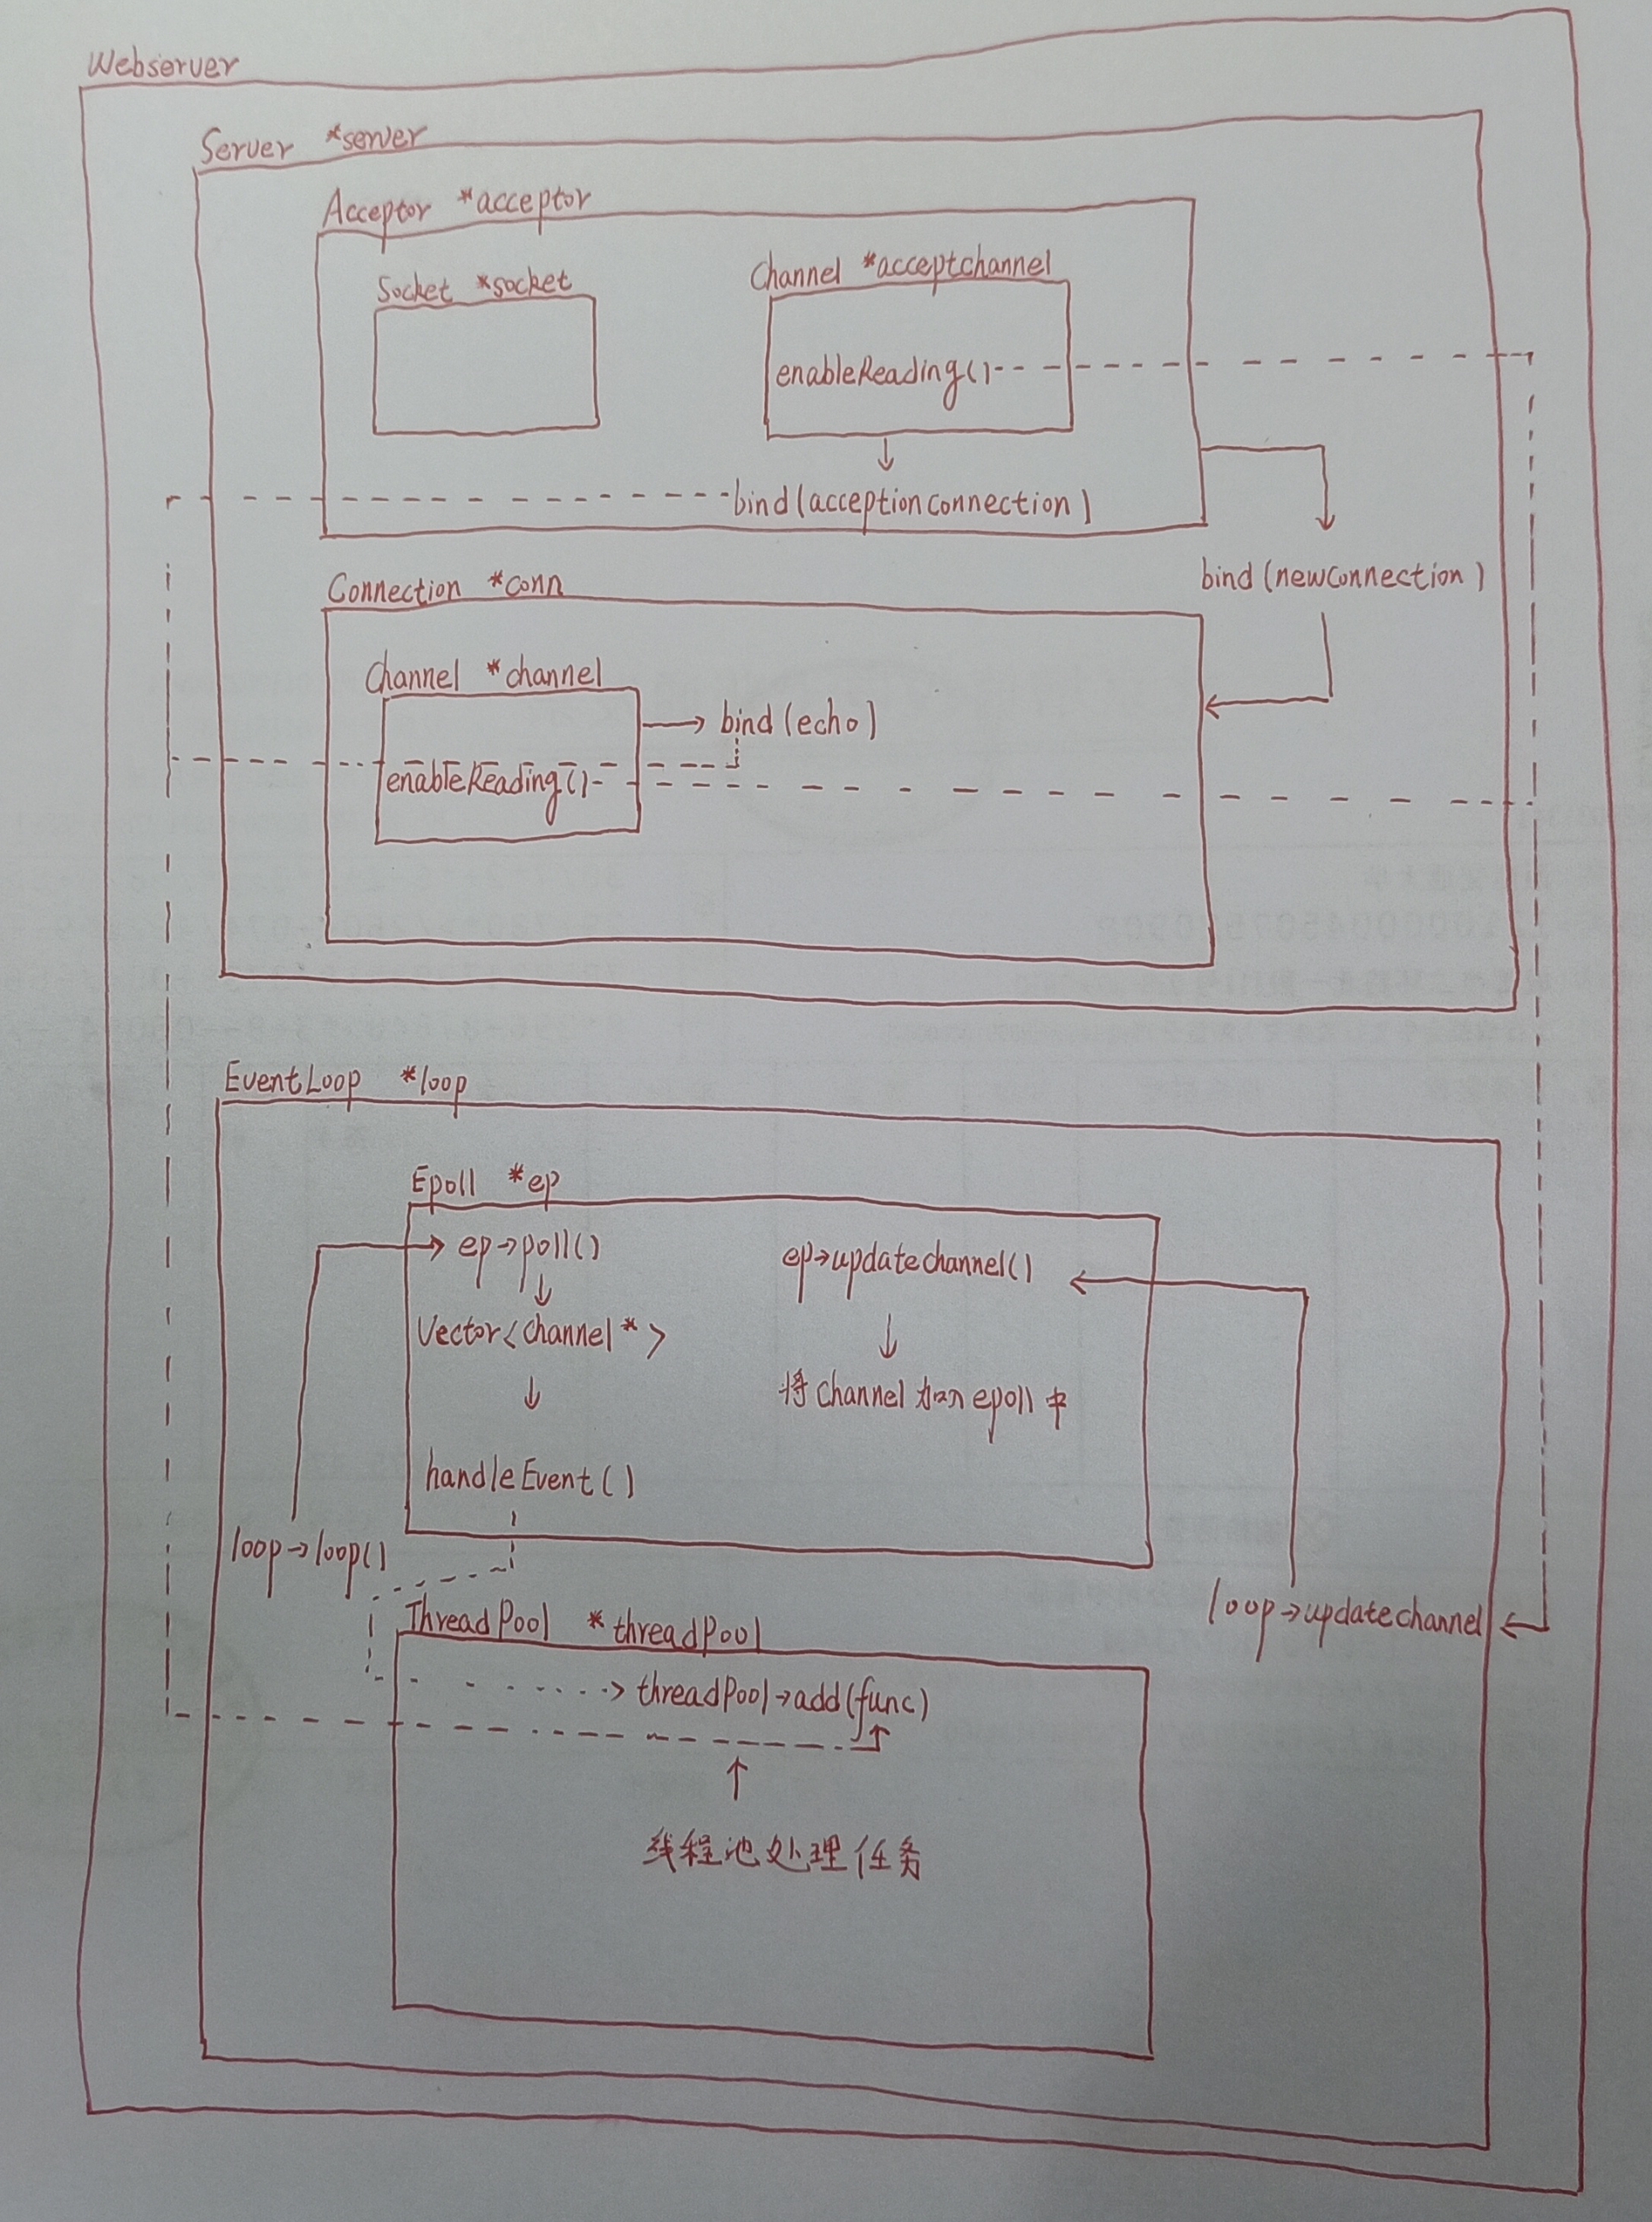 Webserver
Server *server
Acceptor *acceptor
Socket *socket
Channel *acceptchannel
enableReading()
bind(acceptionconnection)
bind(newconnection)
Connection *conn
Channel *channel
bind(echo)
enableReading()
EventLoop *loop
Epoll *ep
ep→poll()
ep→updatechannel()
Vector<channel*>
将channel加入epoll中
handleEvent()
loop→loop()
loop→updatechannel
ThreadPool *threadPool
threadPool→add(func)
线程池处理任务